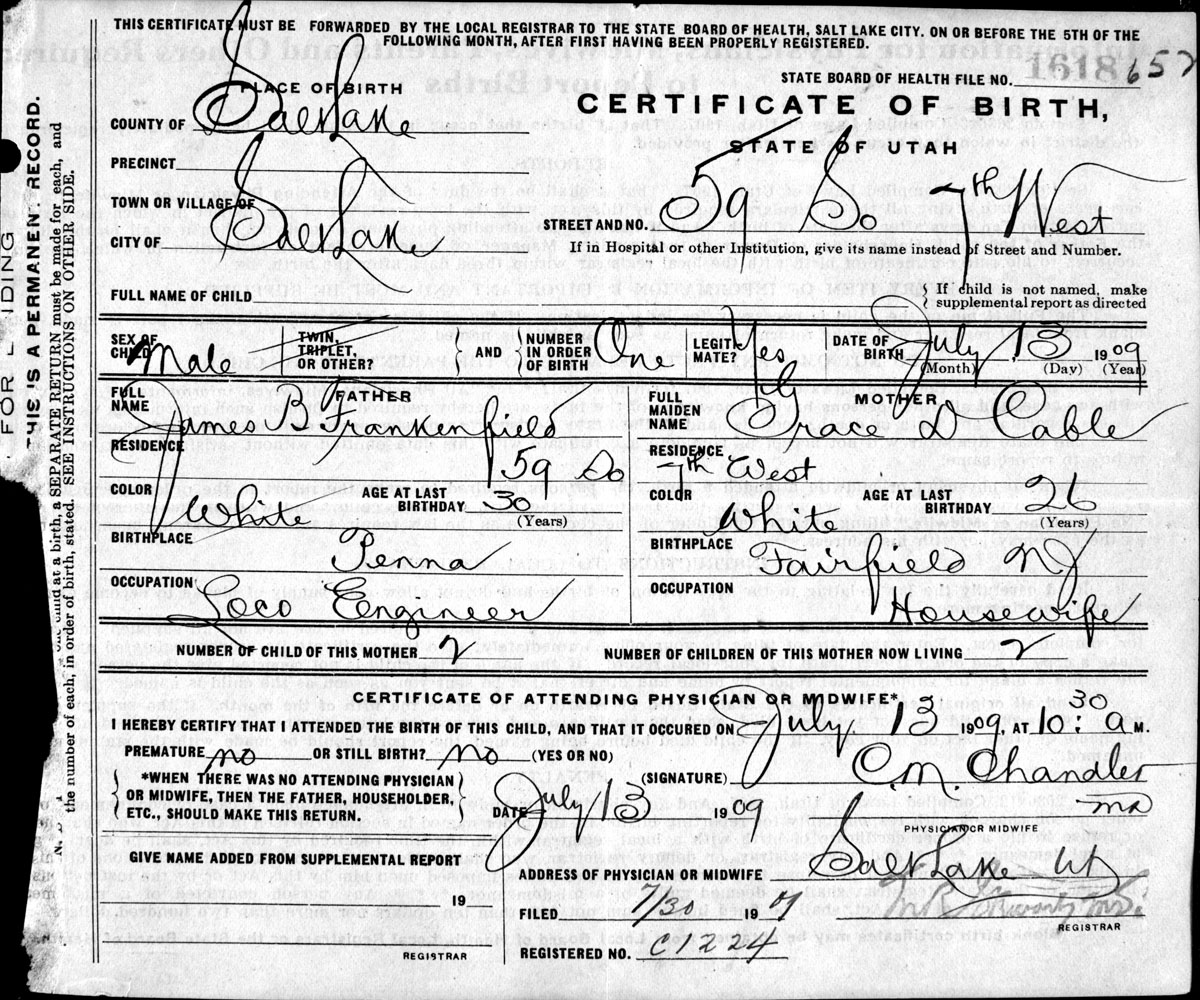 THIS CERTIFICATE MUST BE FORWARDED BY THE LOCAL REGISTRAR TO THE STATE BOARD OF HEALTH, SALT LAKE CITY, ON OR BEFORE THE 5TH OF THE
FOLLOWING MONTH, AFTER FIRST HAVING BEEN PROPERLY REGISTERED.
STATE BOARD OF HEALTH FILE NO. 1618657
PLACE OF BIRTH
CERTIFICATE OF BIRTH,
COUNTY OF Salt Lake
STATE OF UTAH
PRECINCT
TOWN OR VILLAGE OF
STREET AND NO. 59 So 7th West
CITY OF Salt Lake
If in Hospital or other Institution, give its name instead of Street and Number.
FULL NAME OF CHILD
If child is not named, make
supplemental report as directed
SEX OF CHILD Male
TWIN, TRIPLET, OR OTHER?
AND
NUMBER IN ORDER OF BIRTH One
LEGITIMATE? Yes
DATE OF BIRTH July 13 1909
(Month) (Day) (Year)
FATHER
FULL NAME James B Frankenfield
MOTHER
FULL MAIDEN NAME D Cable
RESIDENCE 59 So
RESIDENCE 7th West
COLOR White
AGE AT LAST BIRTHDAY 30
(Years)
COLOR White
AGE AT LAST BIRTHDAY 26
(Years)
BIRTHPLACE Penna
BIRTHPLACE Fairfield NJ
OCCUPATION Loco Eengineer
OCCUPATION Housewife
NUMBER OF CHILD OF THIS MOTHER 2
NUMBER OF CHILDREN OF THIS MOTHER NOW LIVING 2
CERTIFICATE OF ATTENDING PHYSICIAN OR MIDWIFE*
I HEREBY CERTIFY THAT I ATTENDED THE BIRTH OF THIS CHILD, AND THAT IT OCCURED ON July 13 1909, AT 10:30 a M.
PREMATURE no OR STILL BIRTH? no (YES OR NO)
*WHEN THERE WAS NO ATTENDING PHYSICIAN
OR MIDWIFE, THEN THE FATHER, HOUSEHOLDER,
ETC., SHOULD MAKE THIS RETURN.
(SIGNATURE) C.M. Chandler
MD
DATE July 13 1909
PHYSICIAN OR MIDWIFE
GIVE NAME ADDED FROM SUPPLEMENTAL REPORT
19
REGISTRAR
ADDRESS OF PHYSICIAN OR MIDWIFE Salt Lake Ut
FILED 7/30 1909
REGISTRAR
REGISTERED NO. C1224
THIS IS A PERMANENT RECORD.
child at a birth, a SEPARATE RETURN must be made for each, and
the number of each, in order of birth, stated. SEE INSTRUCTIONS ON OTHER SIDE.